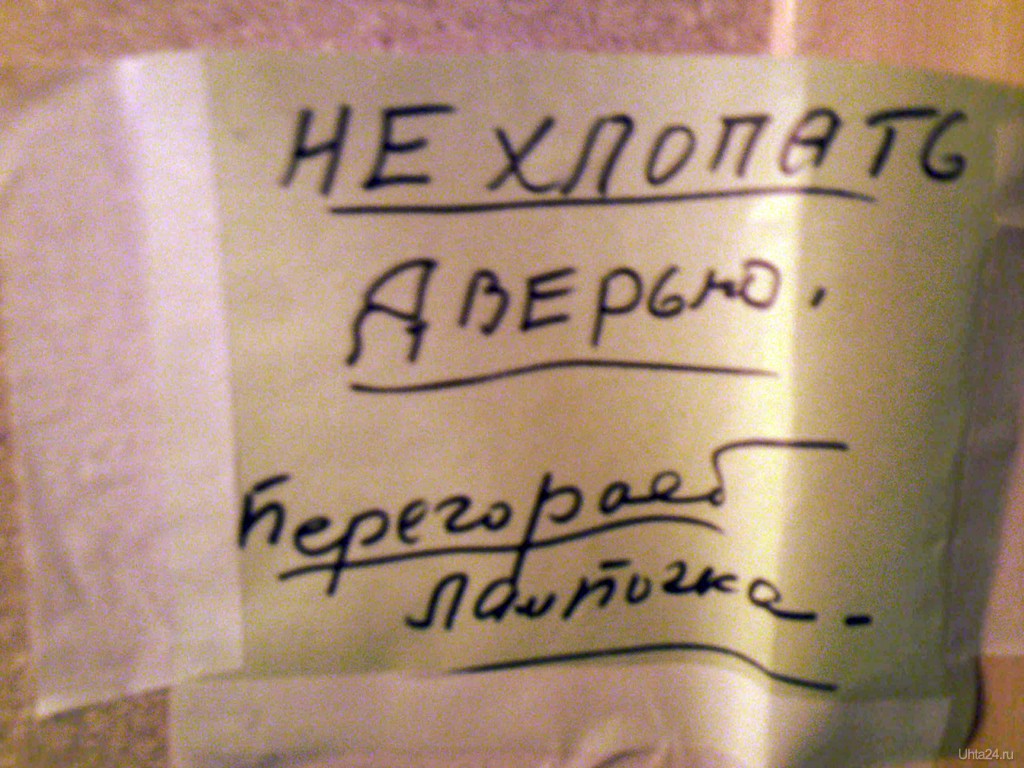 НЕ ХЛОПАТЬ
ДВЕРЬЮ.
Перегорает
лампочка.
Uhta24.ru